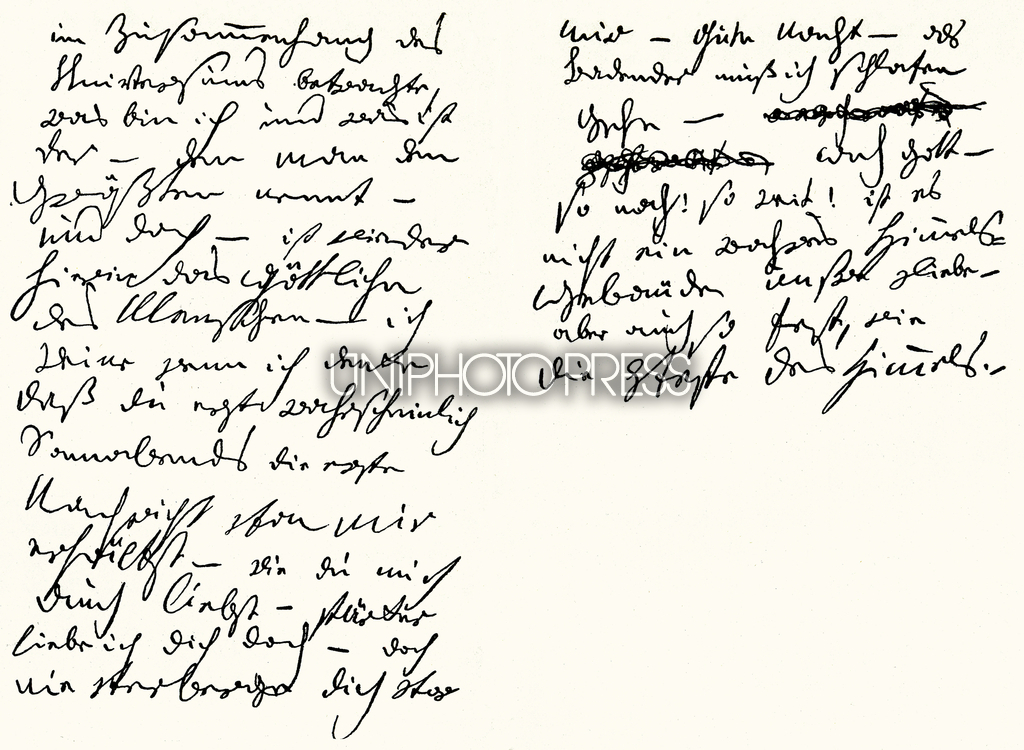 im Zusammenhang des
Universums betrachte,
was bin ich und was ist
der – den man den
Größten nennt –
und doch – ist wieder
hierin das Göttliche
des Menschen – ich
weine wenn ich denke
daß du erst wahrscheinlich
Sonnabends die erste
Nachricht von mir
erhältst – wie du mich
auch liebst – stärker
liebe ich dich doch – doch
nie verberge dich vor
mir – gute Nacht – als
Badender muß ich schlafen
gehn –
ach Gott –
so nah! so weit! ist es
nicht ein wahres Himmels=
Gebäude unsre Liebe –
aber auch so fest, wie
die Veste des Himmels. –
UNIPHOTO PRESS